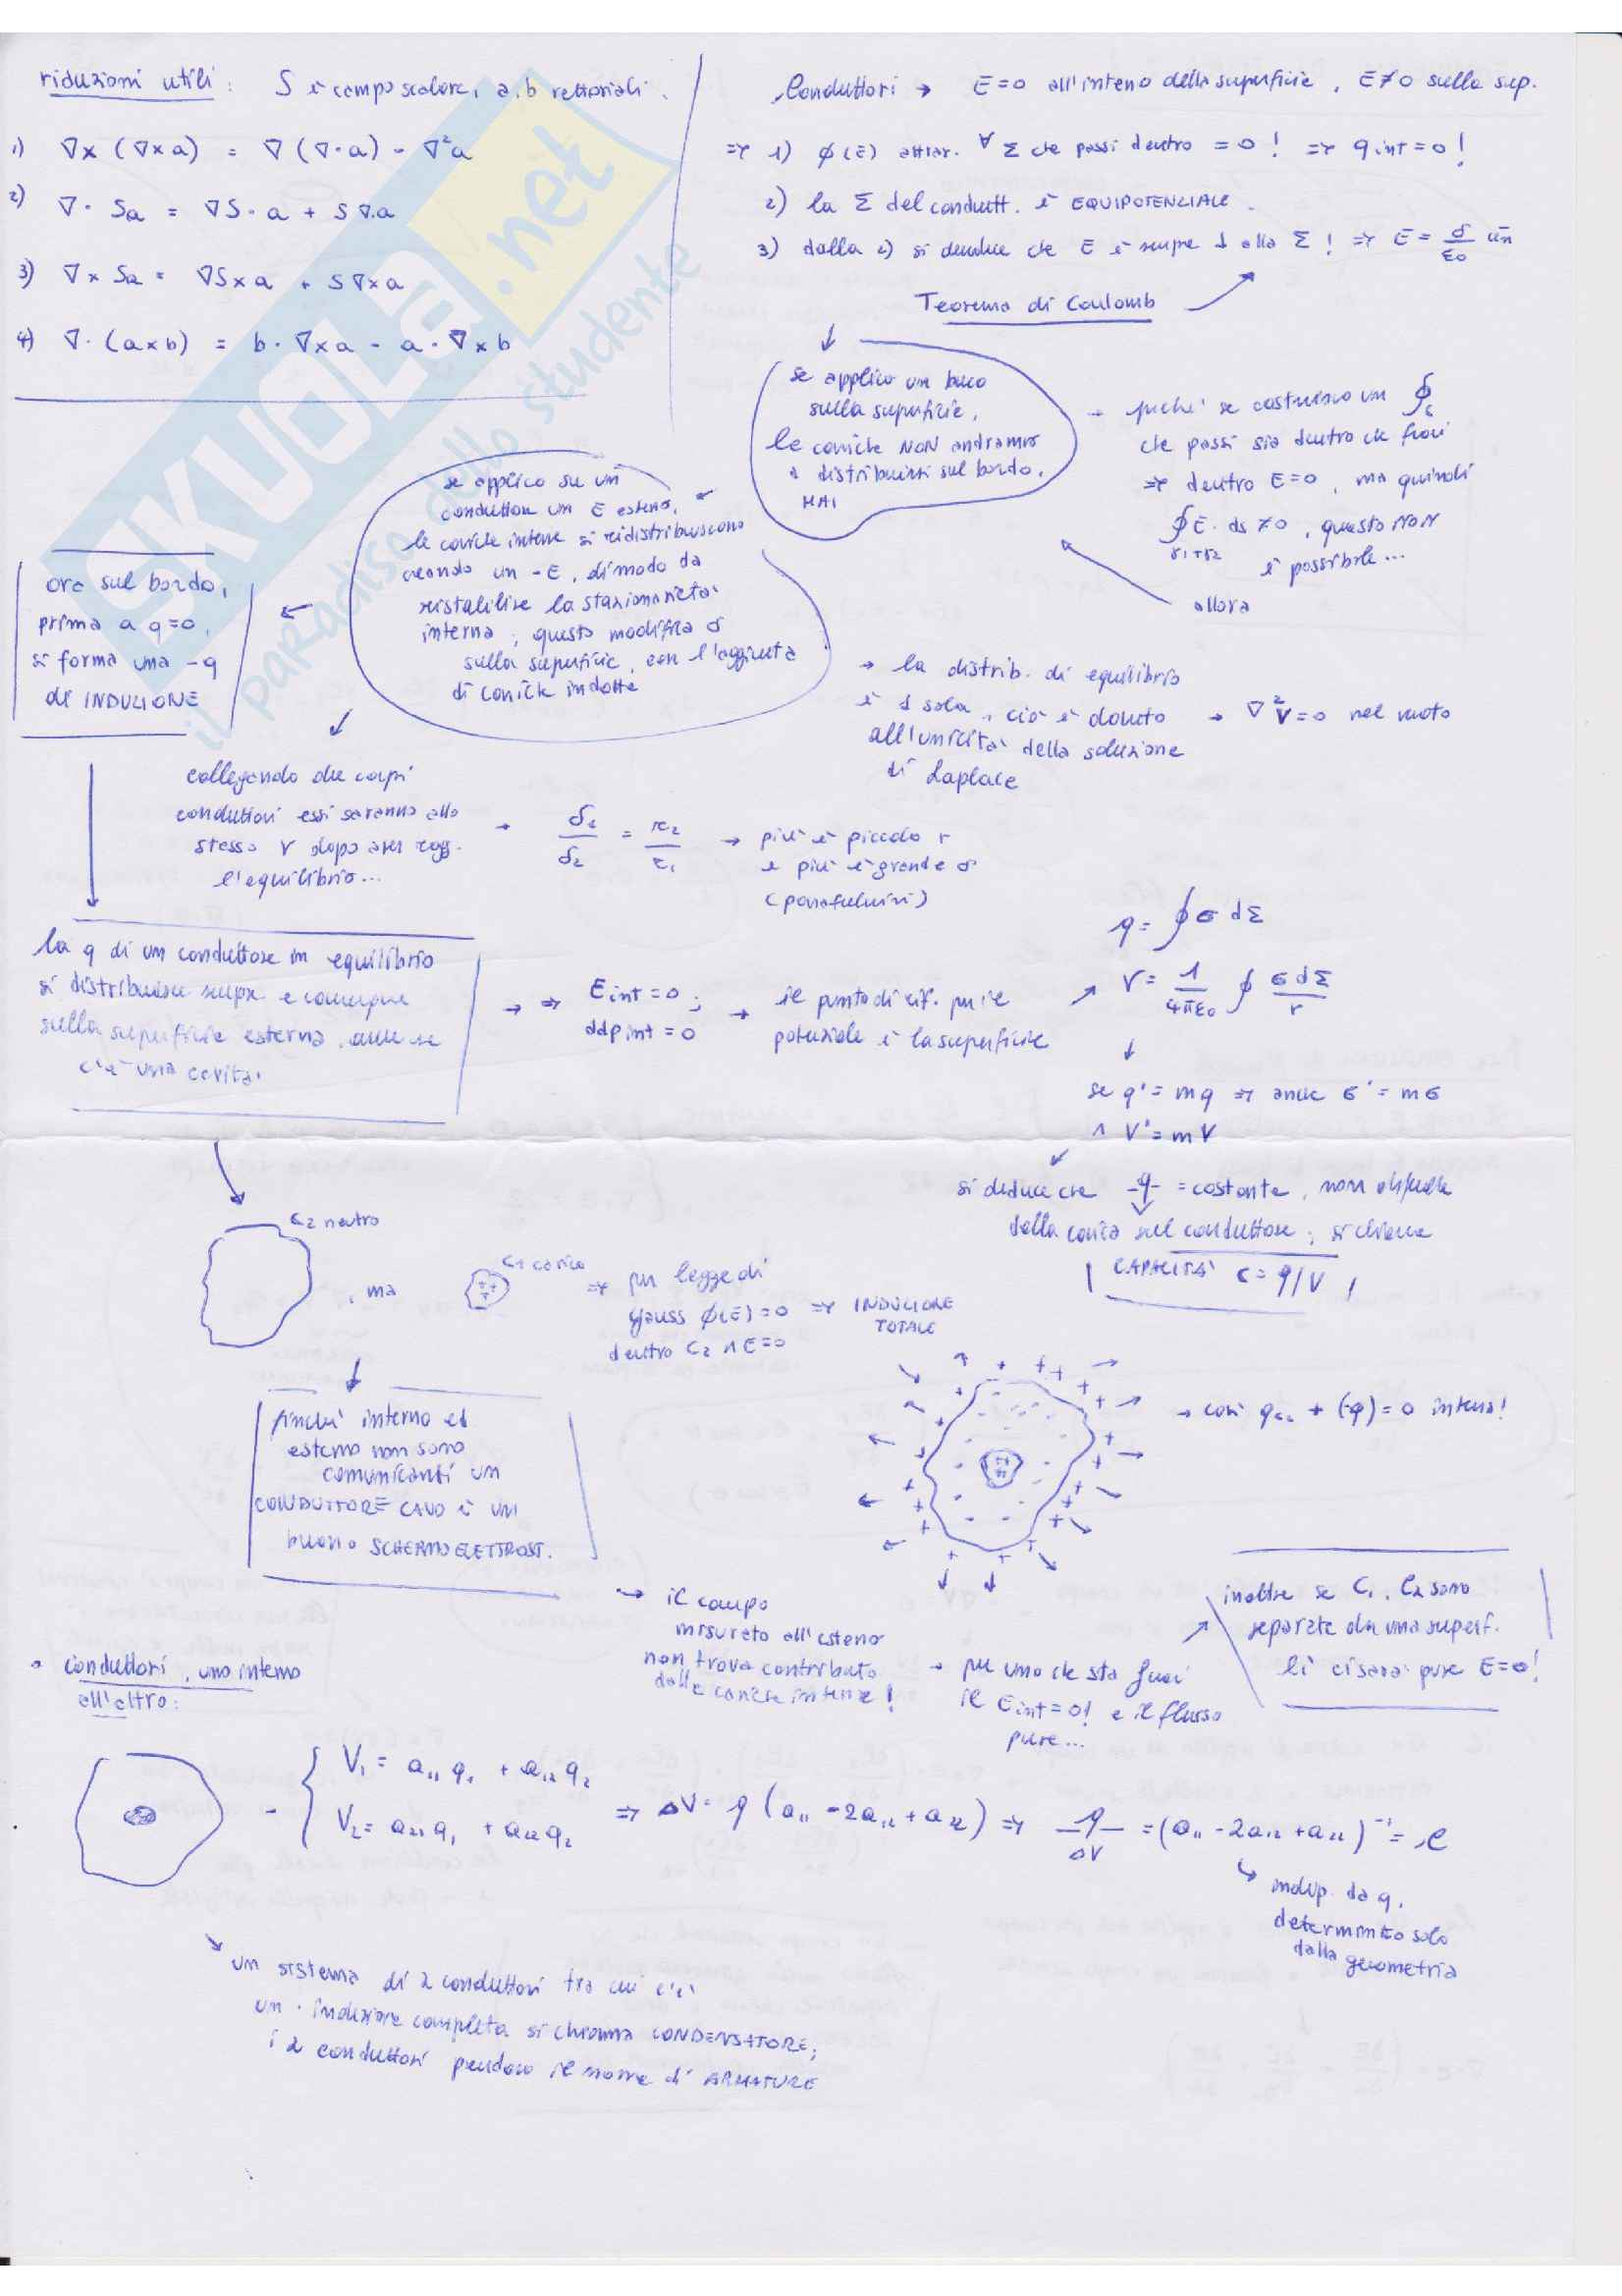 riduzioni utili : S è campo scalare, a, b vettoriali.
1) ∇x (∇xa) = ∇(∇·a) - ∇²a
2) ∇· Sa = ∇S·a + S∇·a
3) ∇x Sa = ∇Sxa + S∇xa
4) ∇·(axb) = b·∇xa - a·∇xb
Conduttori → E=0 all'interno della superficie, E≠0 sulla sup.
⇒ 1) φ(E) attrav. ∀ Σ che passi dentro = 0! ⇒ qint=0!
2) la Σ del condutt. è EQUIPOTENZIALE.
3) dalla 2) si deduce che E è sempre ⊥ alla Σ! ⇒ E = σ/ε0 un
Teorema di Coulomb
se applico un buco
sulla superficie,
le cariche NON andranno
a distribuirsi sul bordo.
MAI
→ perché se costruisco un ∮c
che passi sia dentro che fuori
⇒ dentro E=0, ma quindi
∮E·ds≠0, questo NON
γ1+γ2
è possibile...
allora
se applico su un
conduttore un E esterno,
le cariche interne si ridistribuiscono
creando un -E, di modo da
ristabilire la stazionarietà
interna; questo modifica σ
sulla superficie, con l'aggiunta
di cariche indotte
ora sul bordo,
prima a q=0,
si forma una -q
di INDUZIONE
→ la distrib. di equilibrio
è 1 sola, ciò è dovuto
all'unicità della soluzione
di Laplace
→ ∇²V=0 nel vuoto
collegando due corpi
conduttori essi saranno allo
stesso V dopo aver ragg.
l'equilibrio...
→ σ1/σ2 = r2/r1 → più è piccolo r
e più è grande σ
(parafulmini)
la q di un conduttore in equilibrio
si distribuisce sempre e comunque
sulla superficie esterna, anche se
c'è una cavità
→ ⇒ Eint=0;
ddpint=0
→ il punto di rif. per il
potenziale è la superficie
q = ∮σ dΣ
V = 1/4πε0 ∮ σdΣ/r
se q'=mq ⇒ anche σ'=mσ
∧ V'=mV
si deduce che q/V = costante, non dipende
dalla carica sul conduttore; si chiama
CAPACITÀ C=q/V
C2 neutro
, ma
C1 carico
⇒ per legge di
gauss φ(E)=0 ⇒ INDUZIONE
TOTALE
dentro C2 ∧ E=0
finché interno ed
esterno non sono
comunicanti un
CONDUTTORE CAVO è un
buono SCHERMO ELETTROST.
→ così qc1 + (-q)=0 interna!
→ il campo
misurato all'esterno
non trova contributo
dalle cariche interne!
→ per uno che sta fuori
il Eint=0! e il flusso
pure...
inoltre se C1, C2 sono
separate da una superf.
lì ci sarà pure E=0!
• conduttori, uno interno
all'altro:
- { V1 = a11 q1 + a12 q2
V2 = a21 q1 + a22 q2
⇒ ΔV = q (a11 -2a12 + a22) ⇒ q/ΔV = (a11 -2a12 +a22)⁻¹ = C
indip. da q,
determinato solo
dalla geometria
un sistema di 2 conduttori tra cui c'è
un · induzione completa si chiama CONDENSATORE;
i 2 conduttori prendono il nome di ARMATURE
SKUOLA.net
il paradiso dello studente